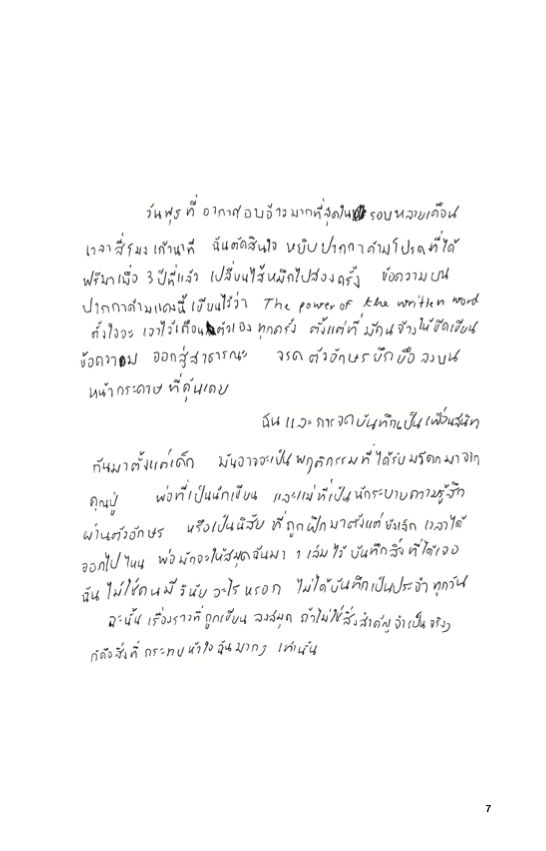 วันพุธ ที่ อากาศ อบอ้าว มากที่สุดใน รอบ หลายเดือน
เวลา สี่โมง เก้านาที ฉันตัดสินใจ หยิบ ปากกา ด้ามโปรด ที่ได้
ฟรีมาเมื่อ 3 ปีที่แล้ว เปลี่ยนไส้หมึกไปสองครั้ง ข้อความ บน
ปากกาด้ามแดงนี้ เขียนไว้ว่า The power of the written word
ตั้งใจจะ เอาไว้เตือนตัวเอง ทุกครั้ง ตั้งแต่ที่ มีคนจ้างให้ขีดเขียน
ข้อความ ออกสู่สาธารณะ จรด ตัวอักษร ยึกยือ ลงบน
หน้ากระดาษ ที่คุ้นเคย
ฉัน และ การจดบันทึกเป็น เพื่อนสนิท
กันมาตั้งแต่เด็ก มันอาจจะเป็น พฤติกรรมที่ ได้รับ มรดก มา จาก
คุณปู่ พ่อที่เป็นนักเขียน และแม่ ที่เป็น นักระบายความรู้สึก
ผ่านตัวอักษร หรือเป็นนิสัย ที่ ถูกฝึก มาตั้งแต่ ยังเล็ก เวลาได้
ออกไป ไหน พ่อ มักจะให้สมุดฉันมา 1 เล่ม ไว้ บันทึกสิ่ง ที่ได้เจอ
ฉัน ไม่ใช่คนมี วินัย อะไร หรอก ไม่ได้บันทึกเป็นประจำ ทุกวัน
ฉะนั้น เรื่องราวที่ ถูกเขียน ลงสมุด ถ้าไม่ใช่ สิ่งสำคัญ จำเป็น จริงๆ
ก็คือสิ่งที่ กระทบ หัวใจ ฉัน มากๆ เท่านั้น
7